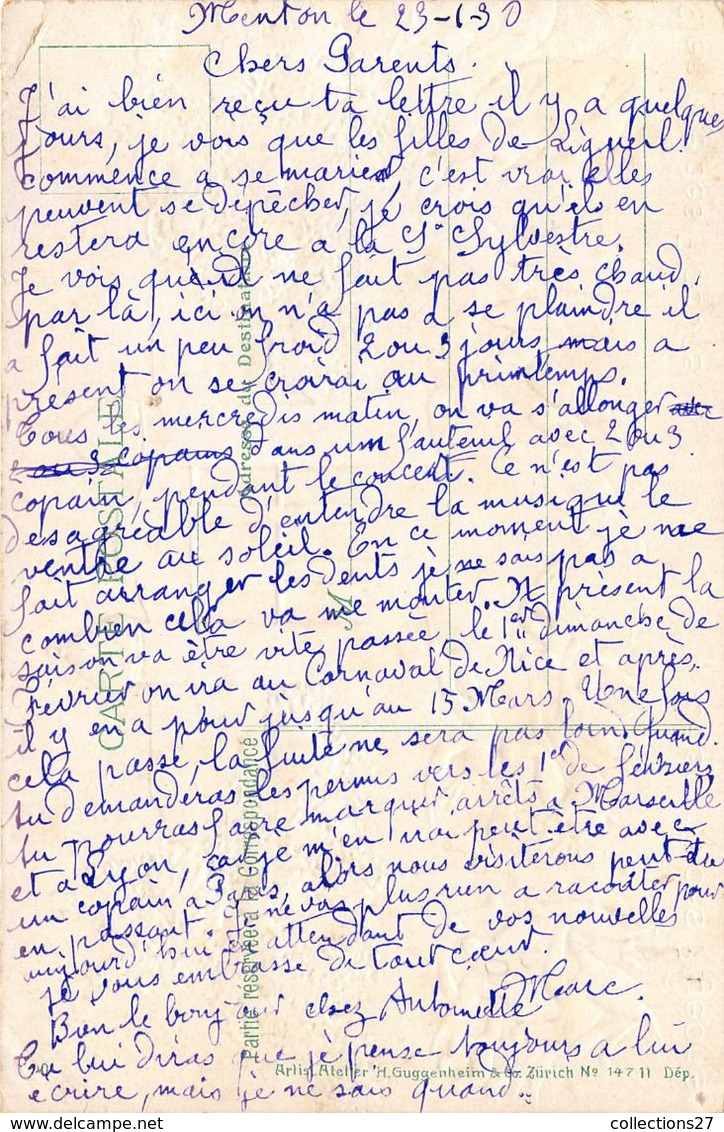 Menton le 23-1-30
Chers Parents.
J'ai bien reçu ta lettre il y a quelques
jours, je vois que les filles de Ligueil
commence a se marier, c'est vrai elles
peuvent se dépêcher, je crois qu'il en
restera encore a la St Sylvestre.
Je vois qu'il ne fait pas très chaud
par là, ici on n'a pas a se plaindre il
a fait un peu froid 2 ou 3 jours mais a
présent on se croirai au printemps.
Tous les mercredis matin, on va s'allonger avec
2 ou 3 copains dans un fauteuil avec 2 ou 3
copain, pendant le concert. Ce n'est pas
desagréable d'entendre la musique le
ventre au soleil. En ce moment je me
fait arranger les dents je ne sais pas a
combien cela va me monter. A présent la
saison va être vite passée, le 1er dimanche de
Février on ira au Carnaval de Nice et après
il y en a pour jusqu'au 15 Mars. Une fois
cela passé, la fuite ne sera pas loin. Quand
tu demanderas les permis vers les 1er de février
tu pourras faire marquer arrêts a Marseille
et a Lyon, car je m'en irai peut être avec
un copain a Paris, alors nous visiterons peut être
en passant. Je ne vois plus rien a raconter pour
aujourd'hui et attendant de vos nouvelles
je vous embrasse de tout cœur.
Marc.
Bien le bonjour chez Antoinette
Tu lui diras que je pense toujours a lui
ecrire, mais je ne sais quand..
CARTE POSTALE
Adresse du Destinataire
M
Partie réservée à la Correspondance
Artist. Atelier H. Guggenheim & Co. Zürich No 14711 Dép.
collections27